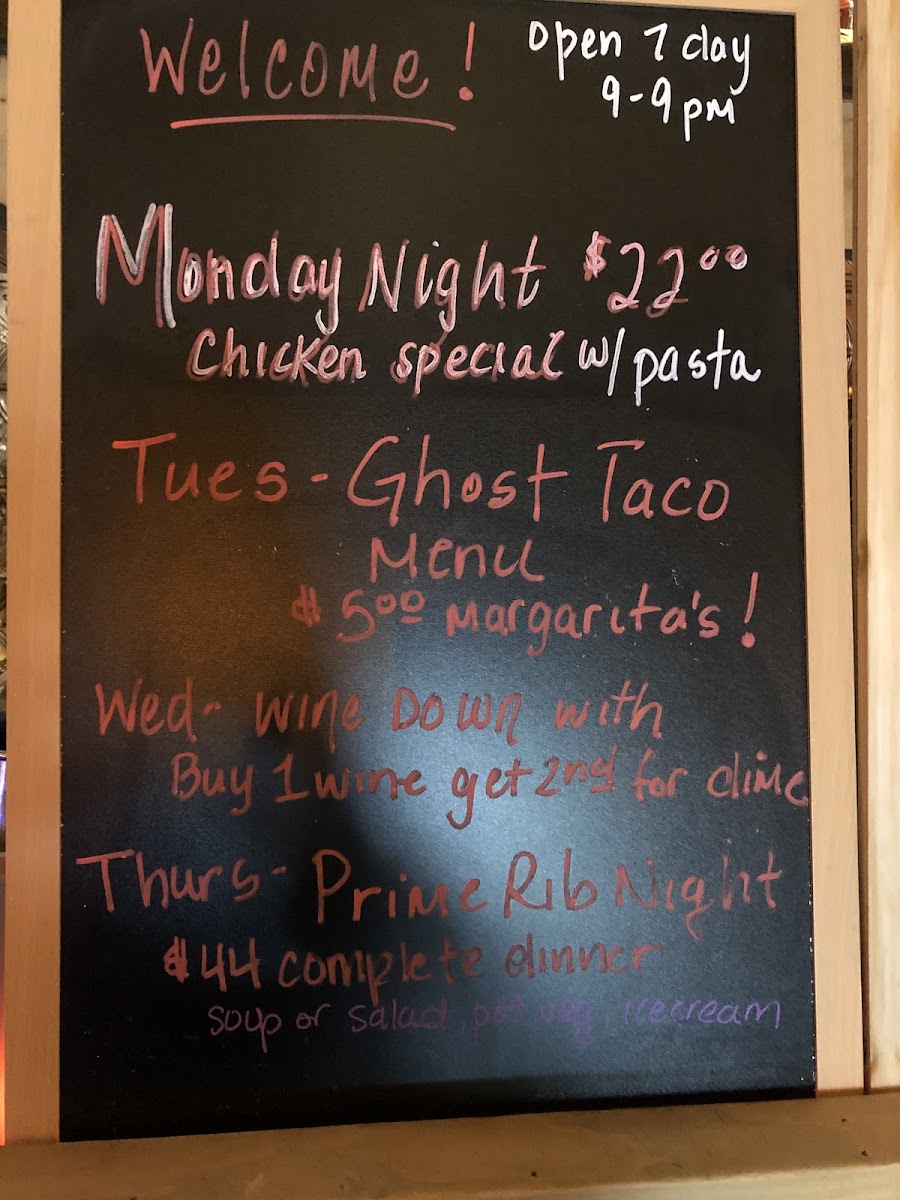 Welcome!
open 7 day
9-9pm
Monday Night $22.00
Chicken special w/pasta
Tues - Ghost Taco
Menu
$5.00 Margarita's!
Wed- Wine Down with
Buy 1 wine get 2nd for dime
Thurs- Prime Rib Night
$44 complete dinner
soup or salad, pot, veg, icecream